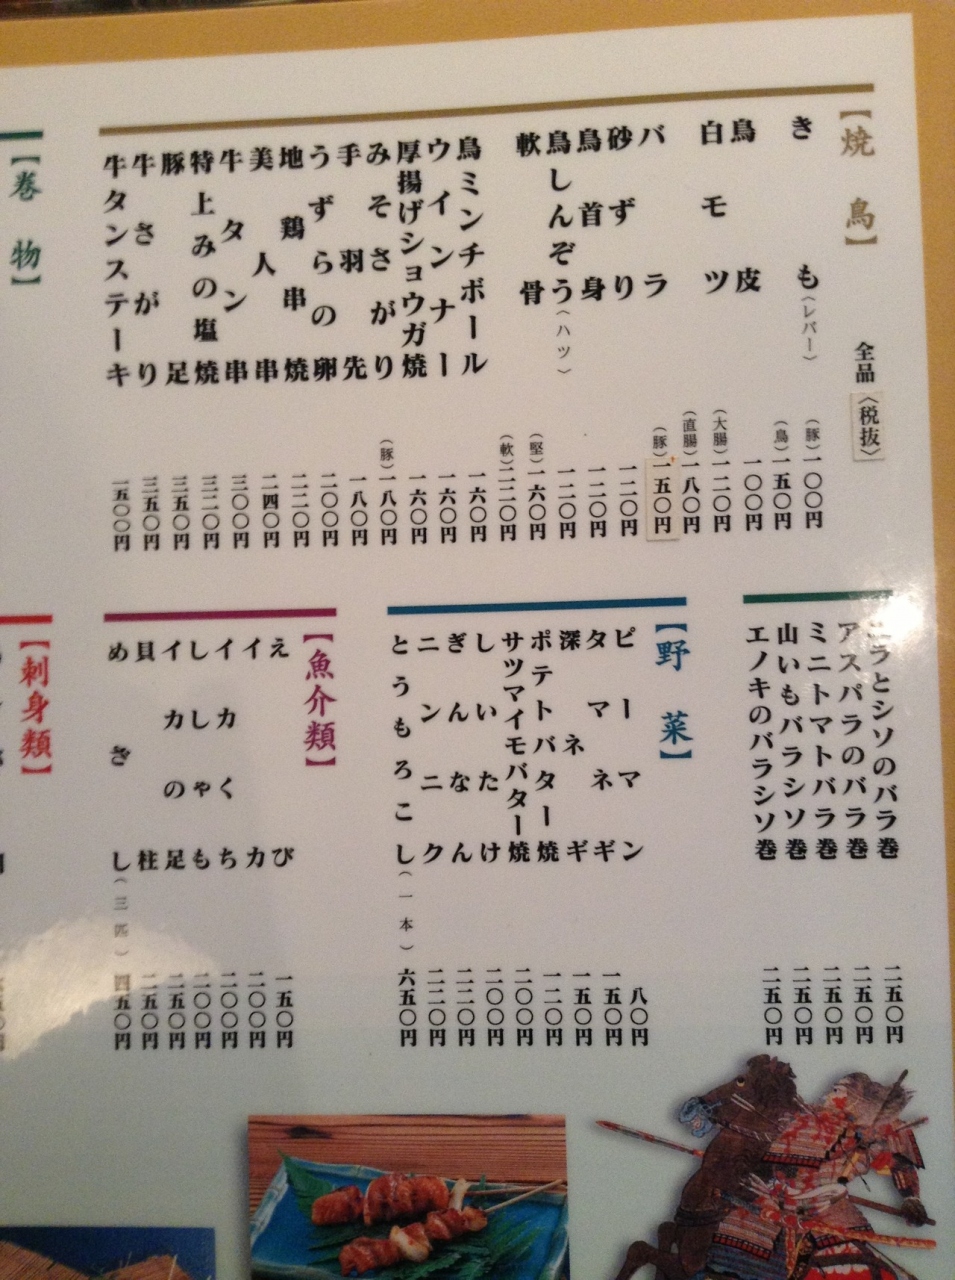 【焼鳥】 全品〈税抜〉
きも(レバー) (豚)一〇〇円
(鳥)一五〇円
鳥皮 一〇〇円
白モツ (大腸)一二〇円
(直腸)一八〇円
バラ (豚)一五〇円
砂ずり 一二〇円
鳥首身 一二〇円
鳥しんぞう(ハツ) 一二〇円
軟骨 (堅)一六〇円
(軟)二二〇円
鳥ミンチボール 一六〇円
ウインナー 一六〇円
厚揚げショウガ焼 一六〇円
みそさがり (豚)一八〇円
手羽先 一八〇円
うずらの卵 二〇〇円
地鶏串焼 二二〇円
美人串 二四〇円
牛タン串 三〇〇円
特上みの塩焼 三二〇円
豚足 三五〇円
牛さがり 三五〇円
牛タンステーキ 一五〇〇円
【巻物】
ニラとシソのバラ巻 二五〇円
アスパラのバラ巻 二五〇円
ミニトマトバラ巻 二五〇円
山いもバラシソ巻 二五〇円
エノキのバラシソ巻 二五〇円
【野菜】
ピーマン 八〇円
タマネギ 一五〇円
深ネギ 一五〇円
ポテトバター焼 一二〇円
サツマイモバター焼 二〇〇円
しいたけ 二〇〇円
ぎんなん 二二〇円
ニンニク 二二〇円
とうもろこし(一本) 六五〇円
【魚介類】
えび 一五〇円
イカ 二〇〇円
イカくち 二〇〇円
ししゃも 二〇〇円
イカの足 二五〇円
貝柱 二五〇円
めざし(三匹) 四五〇円
【刺身類】